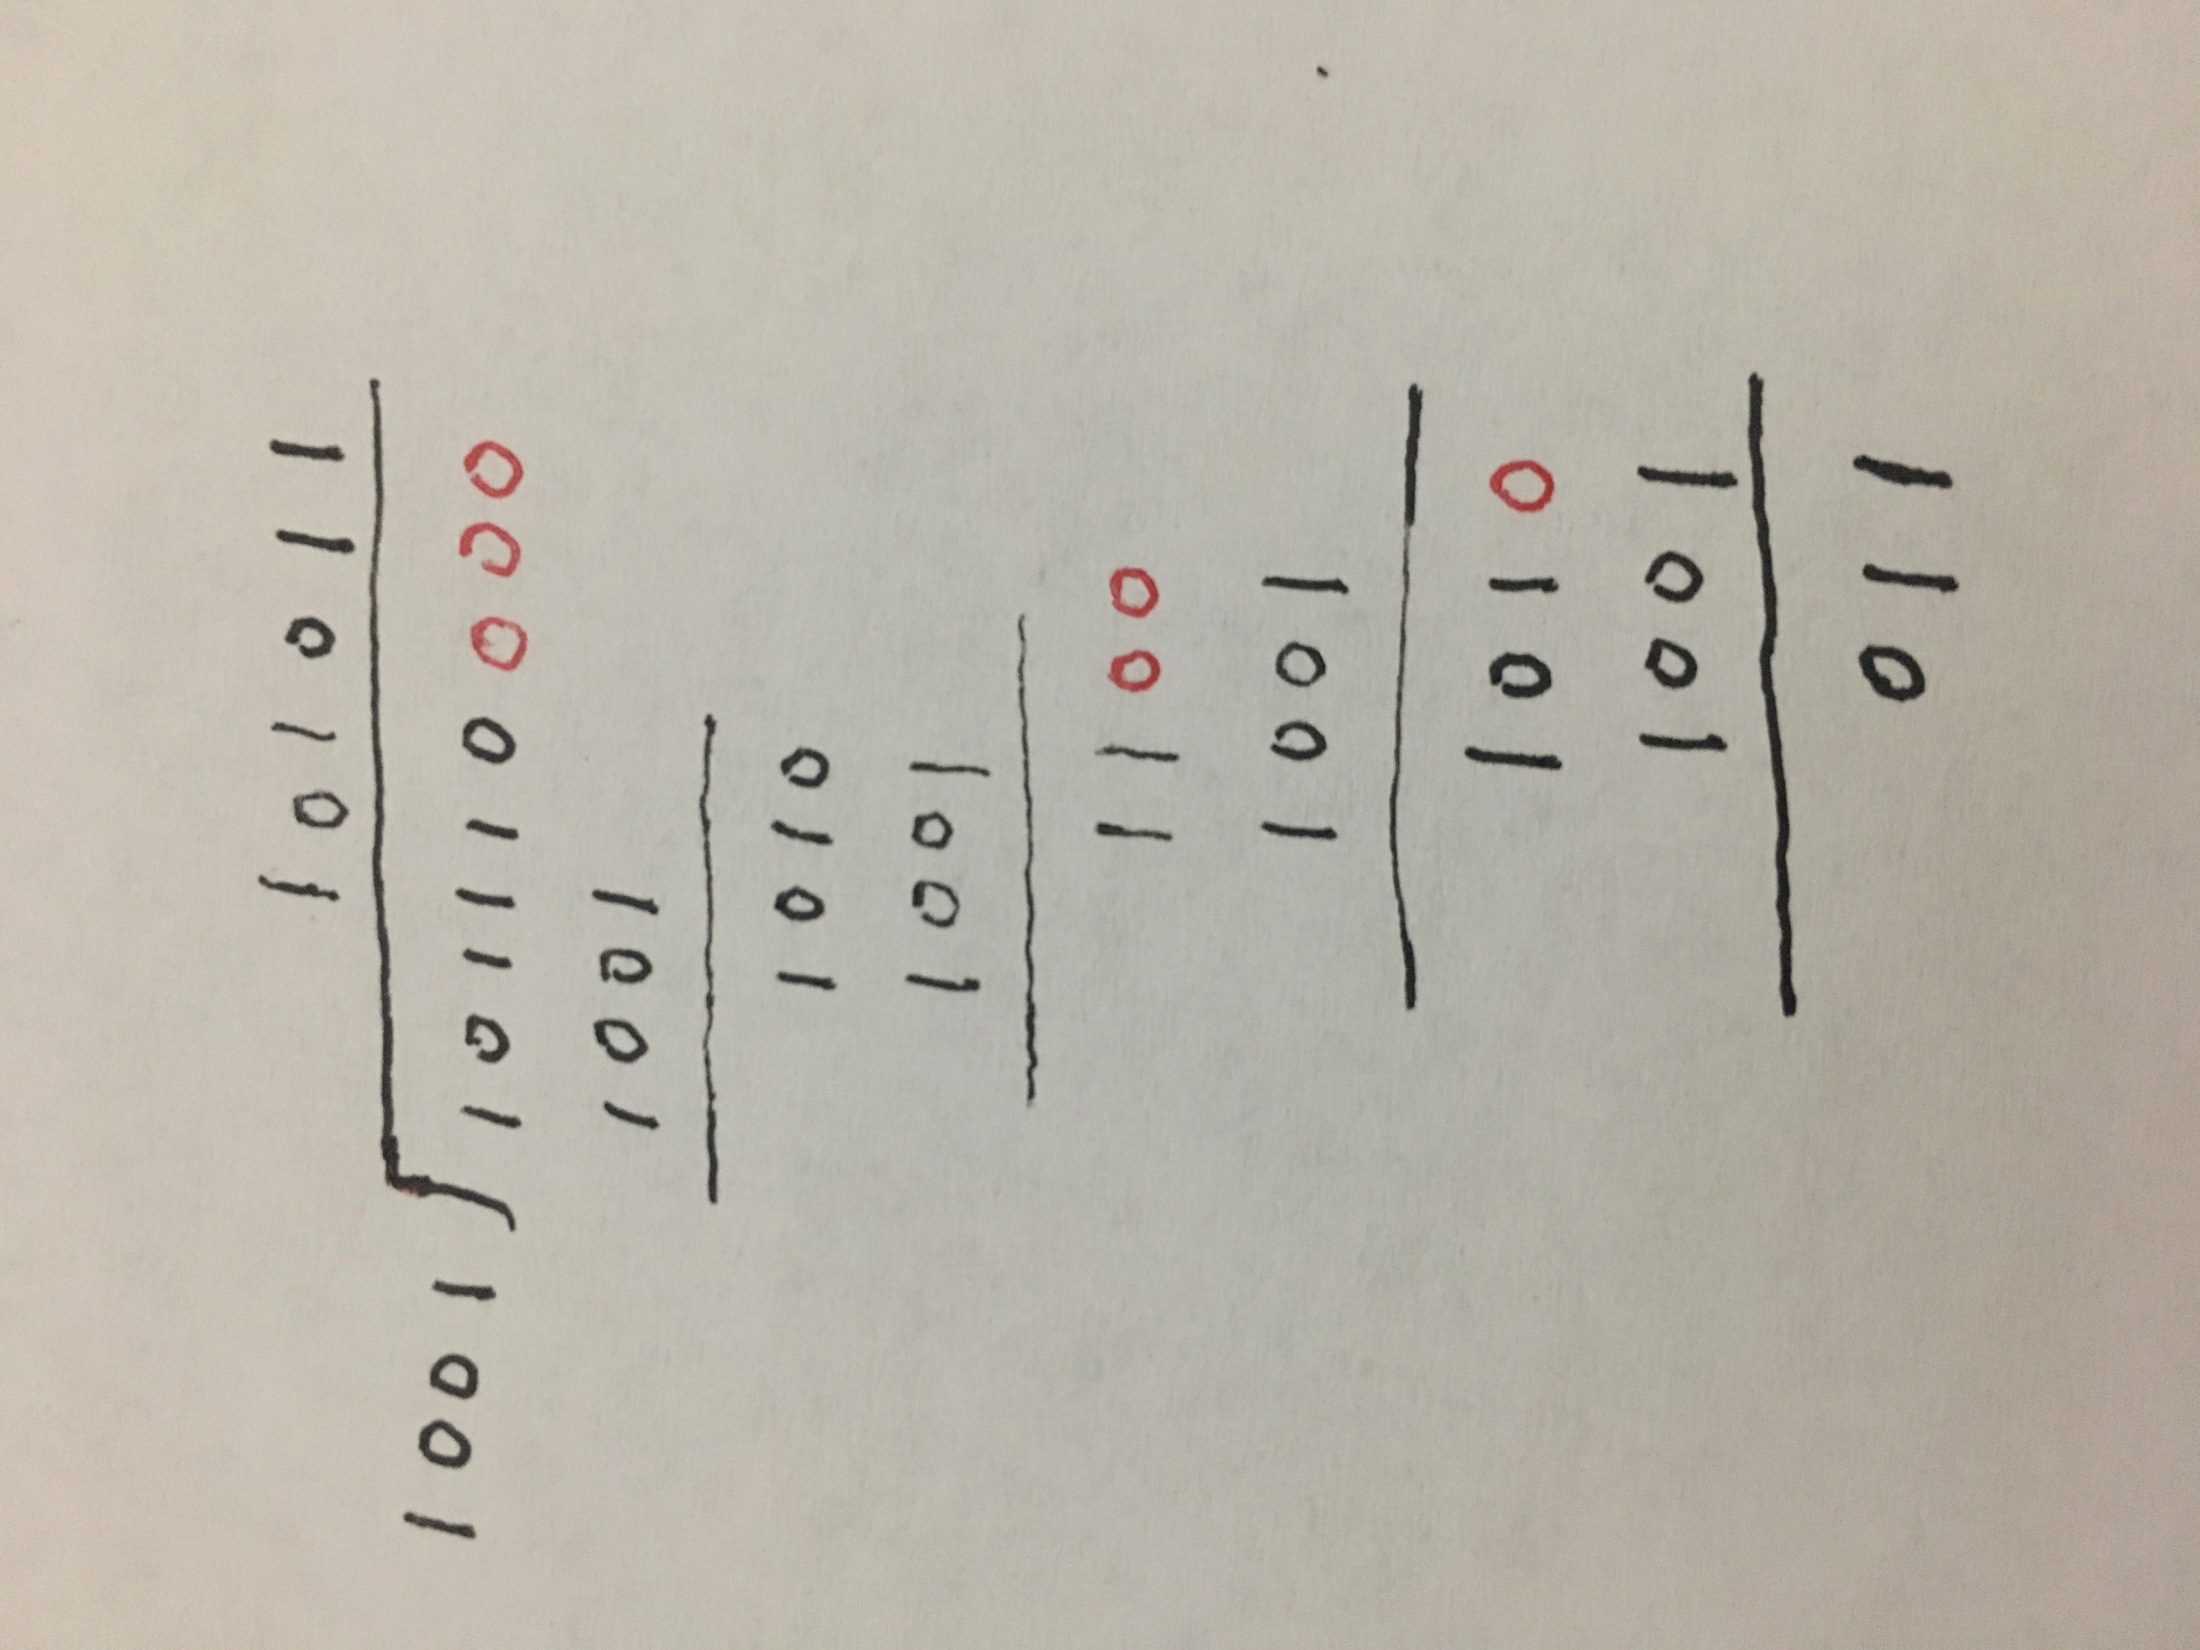 1 0 1 0 1 1
1 0 0 1 ) 1 0 1 1 1 0 0 0 0
1 0 0 1
1 0 1 0
1 0 0 1
1 1 0 0
1 0 0 1
1 0 1 0
1 0 0 1
0 1 1